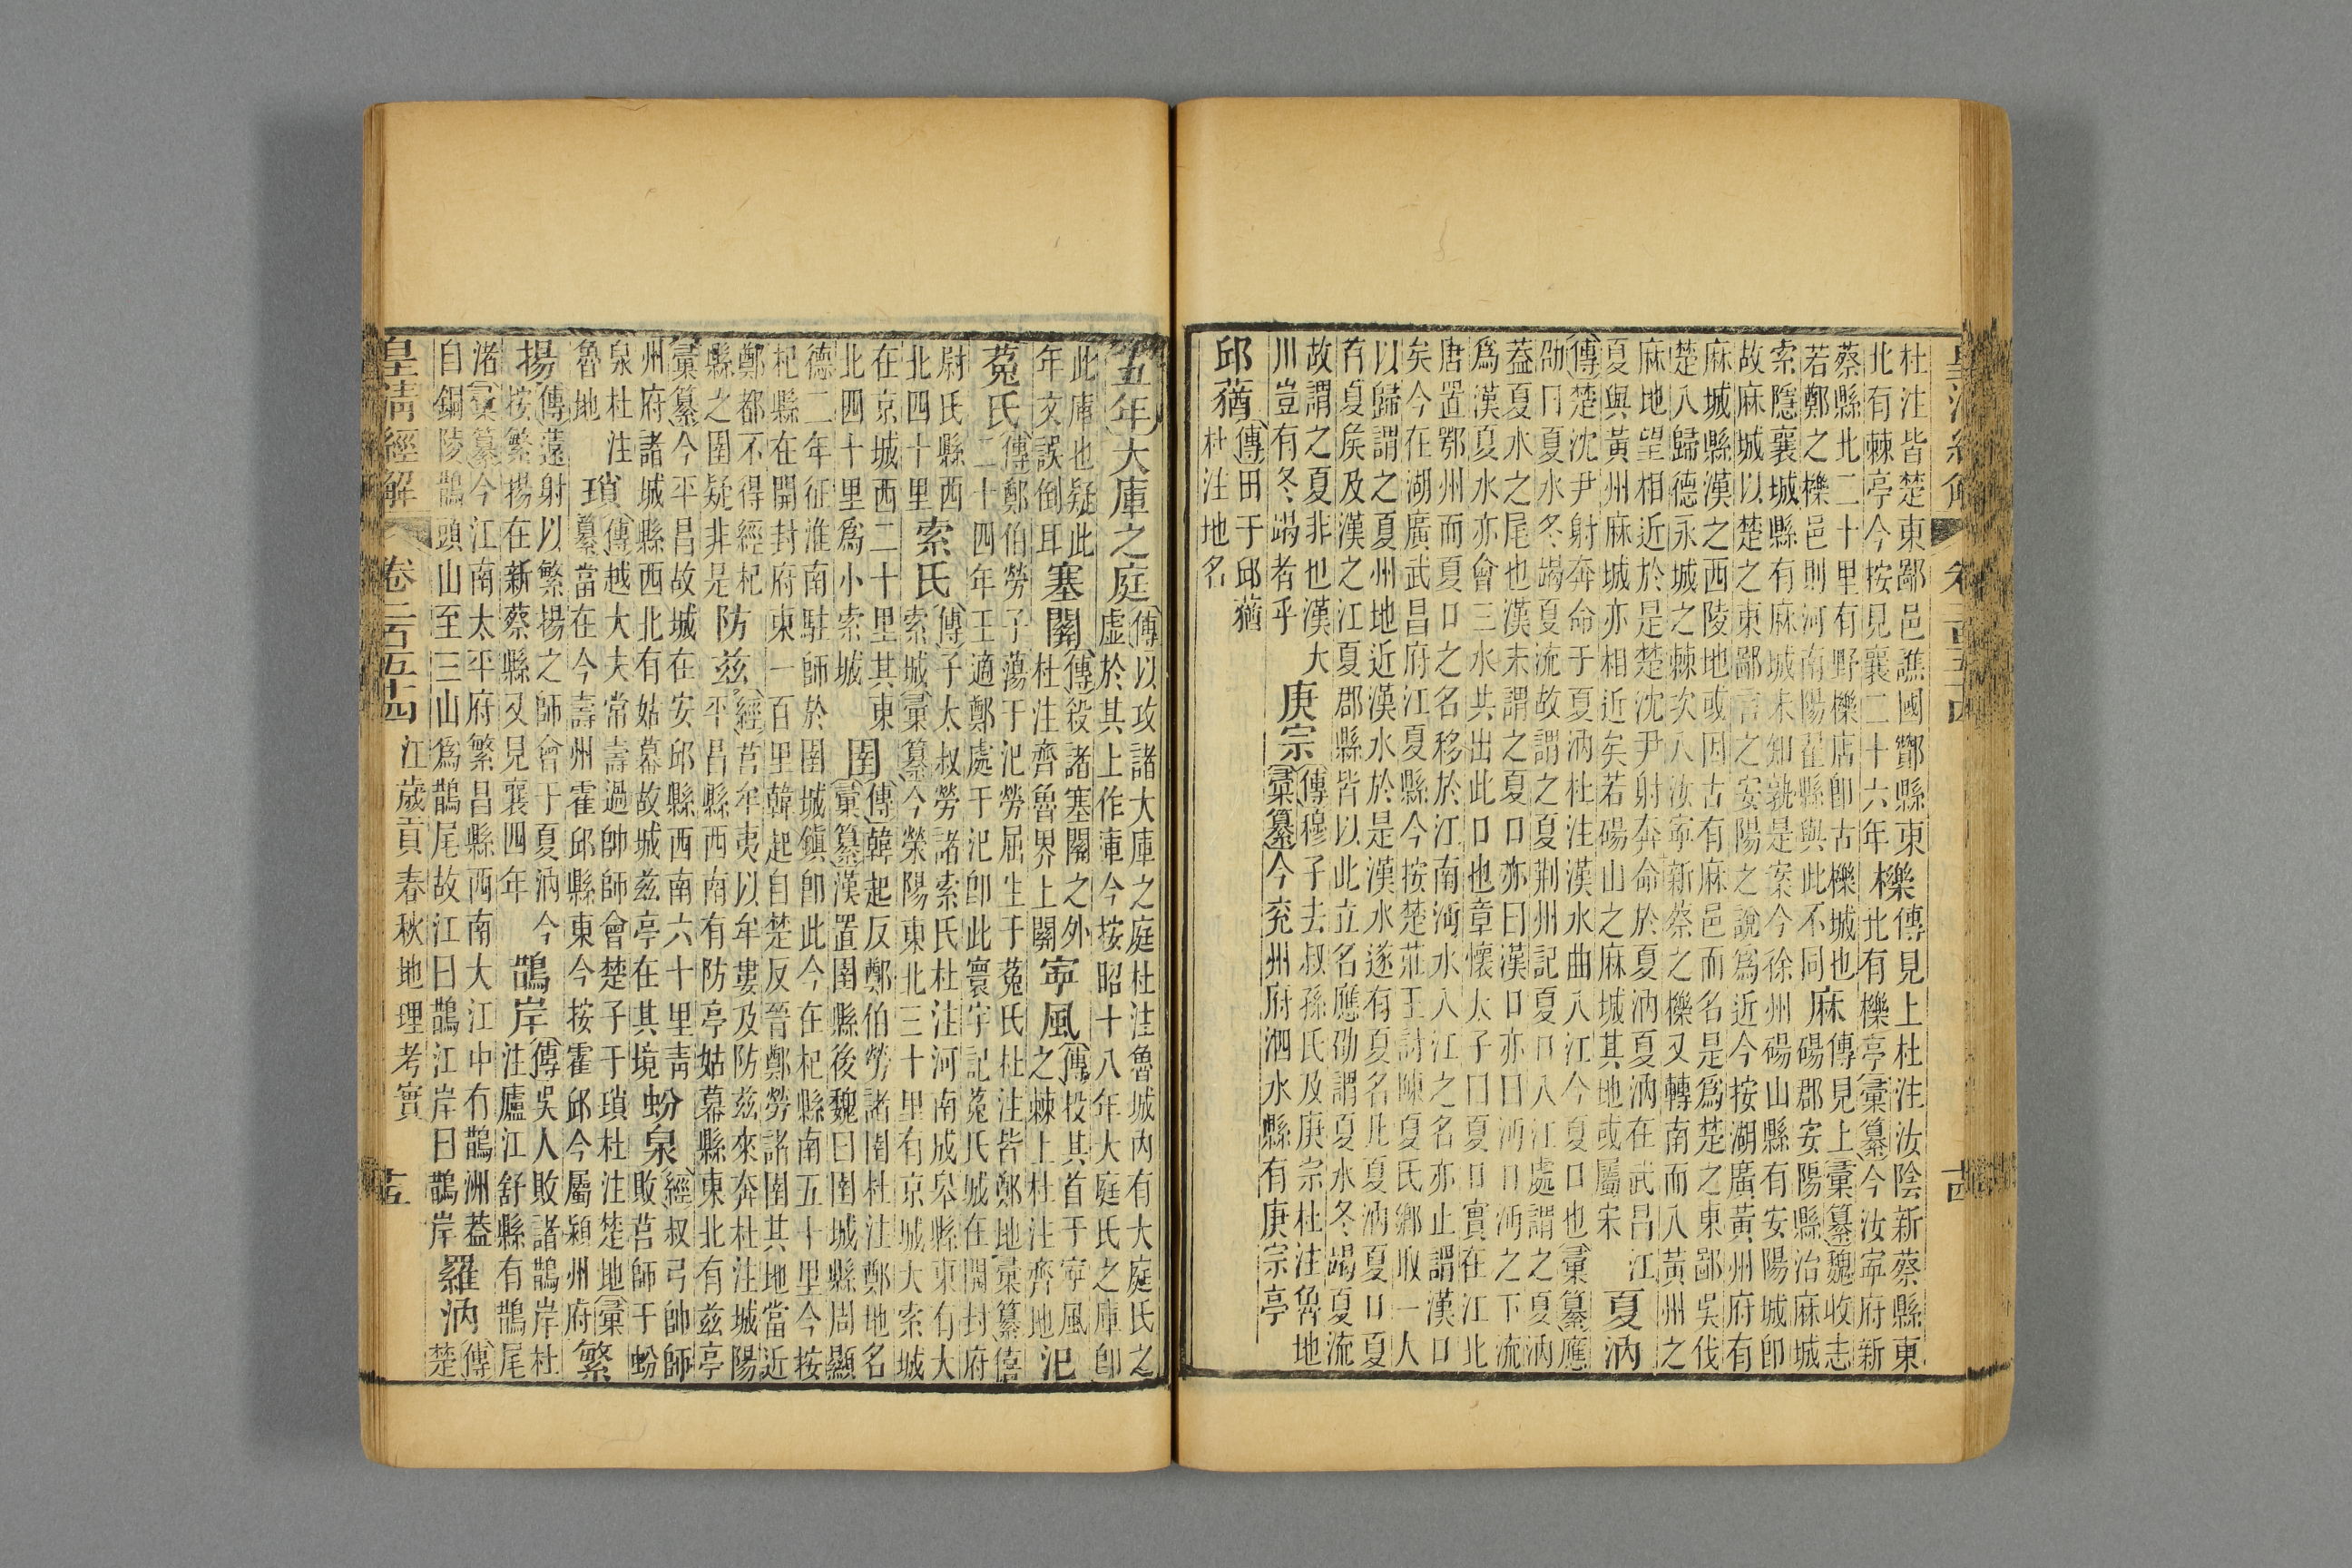 皇清經解 卷二百五十四 十四
杜注皆楚東鄙邑譙國酇縣東
北有棘亭今按見襄二十六年
櫟
傳見上杜注汝陰新蔡縣東
北有櫟亭彙纂今汝寧府新
蔡縣北二十里有野櫟店卽古櫟城也
若鄭之櫟邑則河南陽翟縣與此不同
麻
傳見上彙纂魏收志
碭郡安陽縣治麻城
索隱襄城縣有麻城未知孰是案今徐州碭山縣有安陽城卽
故麻城以楚之東鄙言之安陽之說爲近今按湖廣黃州府有
麻城縣漢之西陵地或因古有麻邑而名是爲楚之東鄙吳伐
楚入歸德永城之棘次入汝寧新蔡之櫟又轉南而入黃州之
麻地望相近於是楚沈尹射奔命於夏汭夏汭在武昌江
夏與黃州麻城亦相近矣若碭山之麻城其地或屬宋
夏汭
傳楚沈尹射奔命于夏汭杜注漢水曲入江今夏口也彙纂應
劭曰夏水冬竭夏流故謂之夏荆州記夏口入江處謂之夏汭
葢夏水之尾也漢末謂之夏口亦曰漢口亦曰沔口沔之下流
爲漢夏水亦會三水共出此口也章懷太子曰夏口實在江北
唐置鄂州而夏口之名移於江南沔水入江之名亦止謂漢口
矣今在湖廣武昌府江夏縣今按楚莊王討陳夏氏鄉取一人
以歸謂之夏州地近漢水於是漢水遂有夏名此夏汭夏口夏
有夏矦及漢之江夏郡縣皆以此立名應劭謂夏水冬竭夏流
故謂之夏非也漢大
川豈有冬竭者乎
庚宗
傳穆子去叔孫氏及庚宗杜注魯地
彙纂今兖州府泗水縣有庚宗亭
邱蕕
傳田于邱蕕
杜注地名
五年大庫之庭
傳以攻諸大庫之庭杜注魯城內有大庭氏之
虛於其上作庫今按昭十八年大庭氏之庫卽
此庫也疑此
年文誤倒耳
塞關
傳殺諸塞關之外
杜注齊魯界上關
寧風
傳投其首于寧風
之棘上杜注齊地
汜
菟氏
傳鄭伯勞子蕩于汜勞屈生于菟氏杜注皆鄭地彙纂僖
二十四年王適鄭處于汜卽此寰宇記菟氏城在開封府
尉氏縣西
北四十里
索氏
傳子太叔勞諸索氏杜注河南成皋縣東有大
索城彙纂今滎陽東北三十里有京城大索城
在京城西二十里其東
北四十里爲小索城
圉
傳韓起反鄭伯勞諸圉杜注鄭地名
彙纂漢置圉縣後魏曰圉城縣周顯
德二年征淮南駐師於圉城鎮卽此今在杞縣南五十里今按
杞縣在開封府東一百里韓起自楚反晉鄭勞諸圉其地當近
鄭都不得經杞
縣之圉疑非是
防茲
經莒牟夷以牟婁及防茲來奔杜注城陽
平昌縣西南有防亭姑幕縣東北有茲亭
彙纂今平昌故城在安邱縣西南六十里靑
州府諸城縣西北有姑幕故城茲亭在其境
蚡泉
經叔弓帥師
敗莒師于蚡
泉杜注
魯地
瑣
傳越大夫常壽過帥師會楚子于瑣杜注楚地彙
纂當在今壽州霍邱縣東今按霍邱今屬潁州府
繁
揚
傳薳射以繁揚之師會于夏汭今
按繁揚在新蔡縣又見襄四年
鵲岸
傳吳人敗諸鵲岸杜
注廬江舒縣有鵲尾
渚彙纂今江南太平府繁昌縣西南大江中有鵲洲葢
自銅陵鵲頭山至三山爲鵲尾故江曰鵲江岸曰鵲岸
羅汭
傳
楚
皇清經解 卷二百五十四 江歲貢春秋地理考實 十五